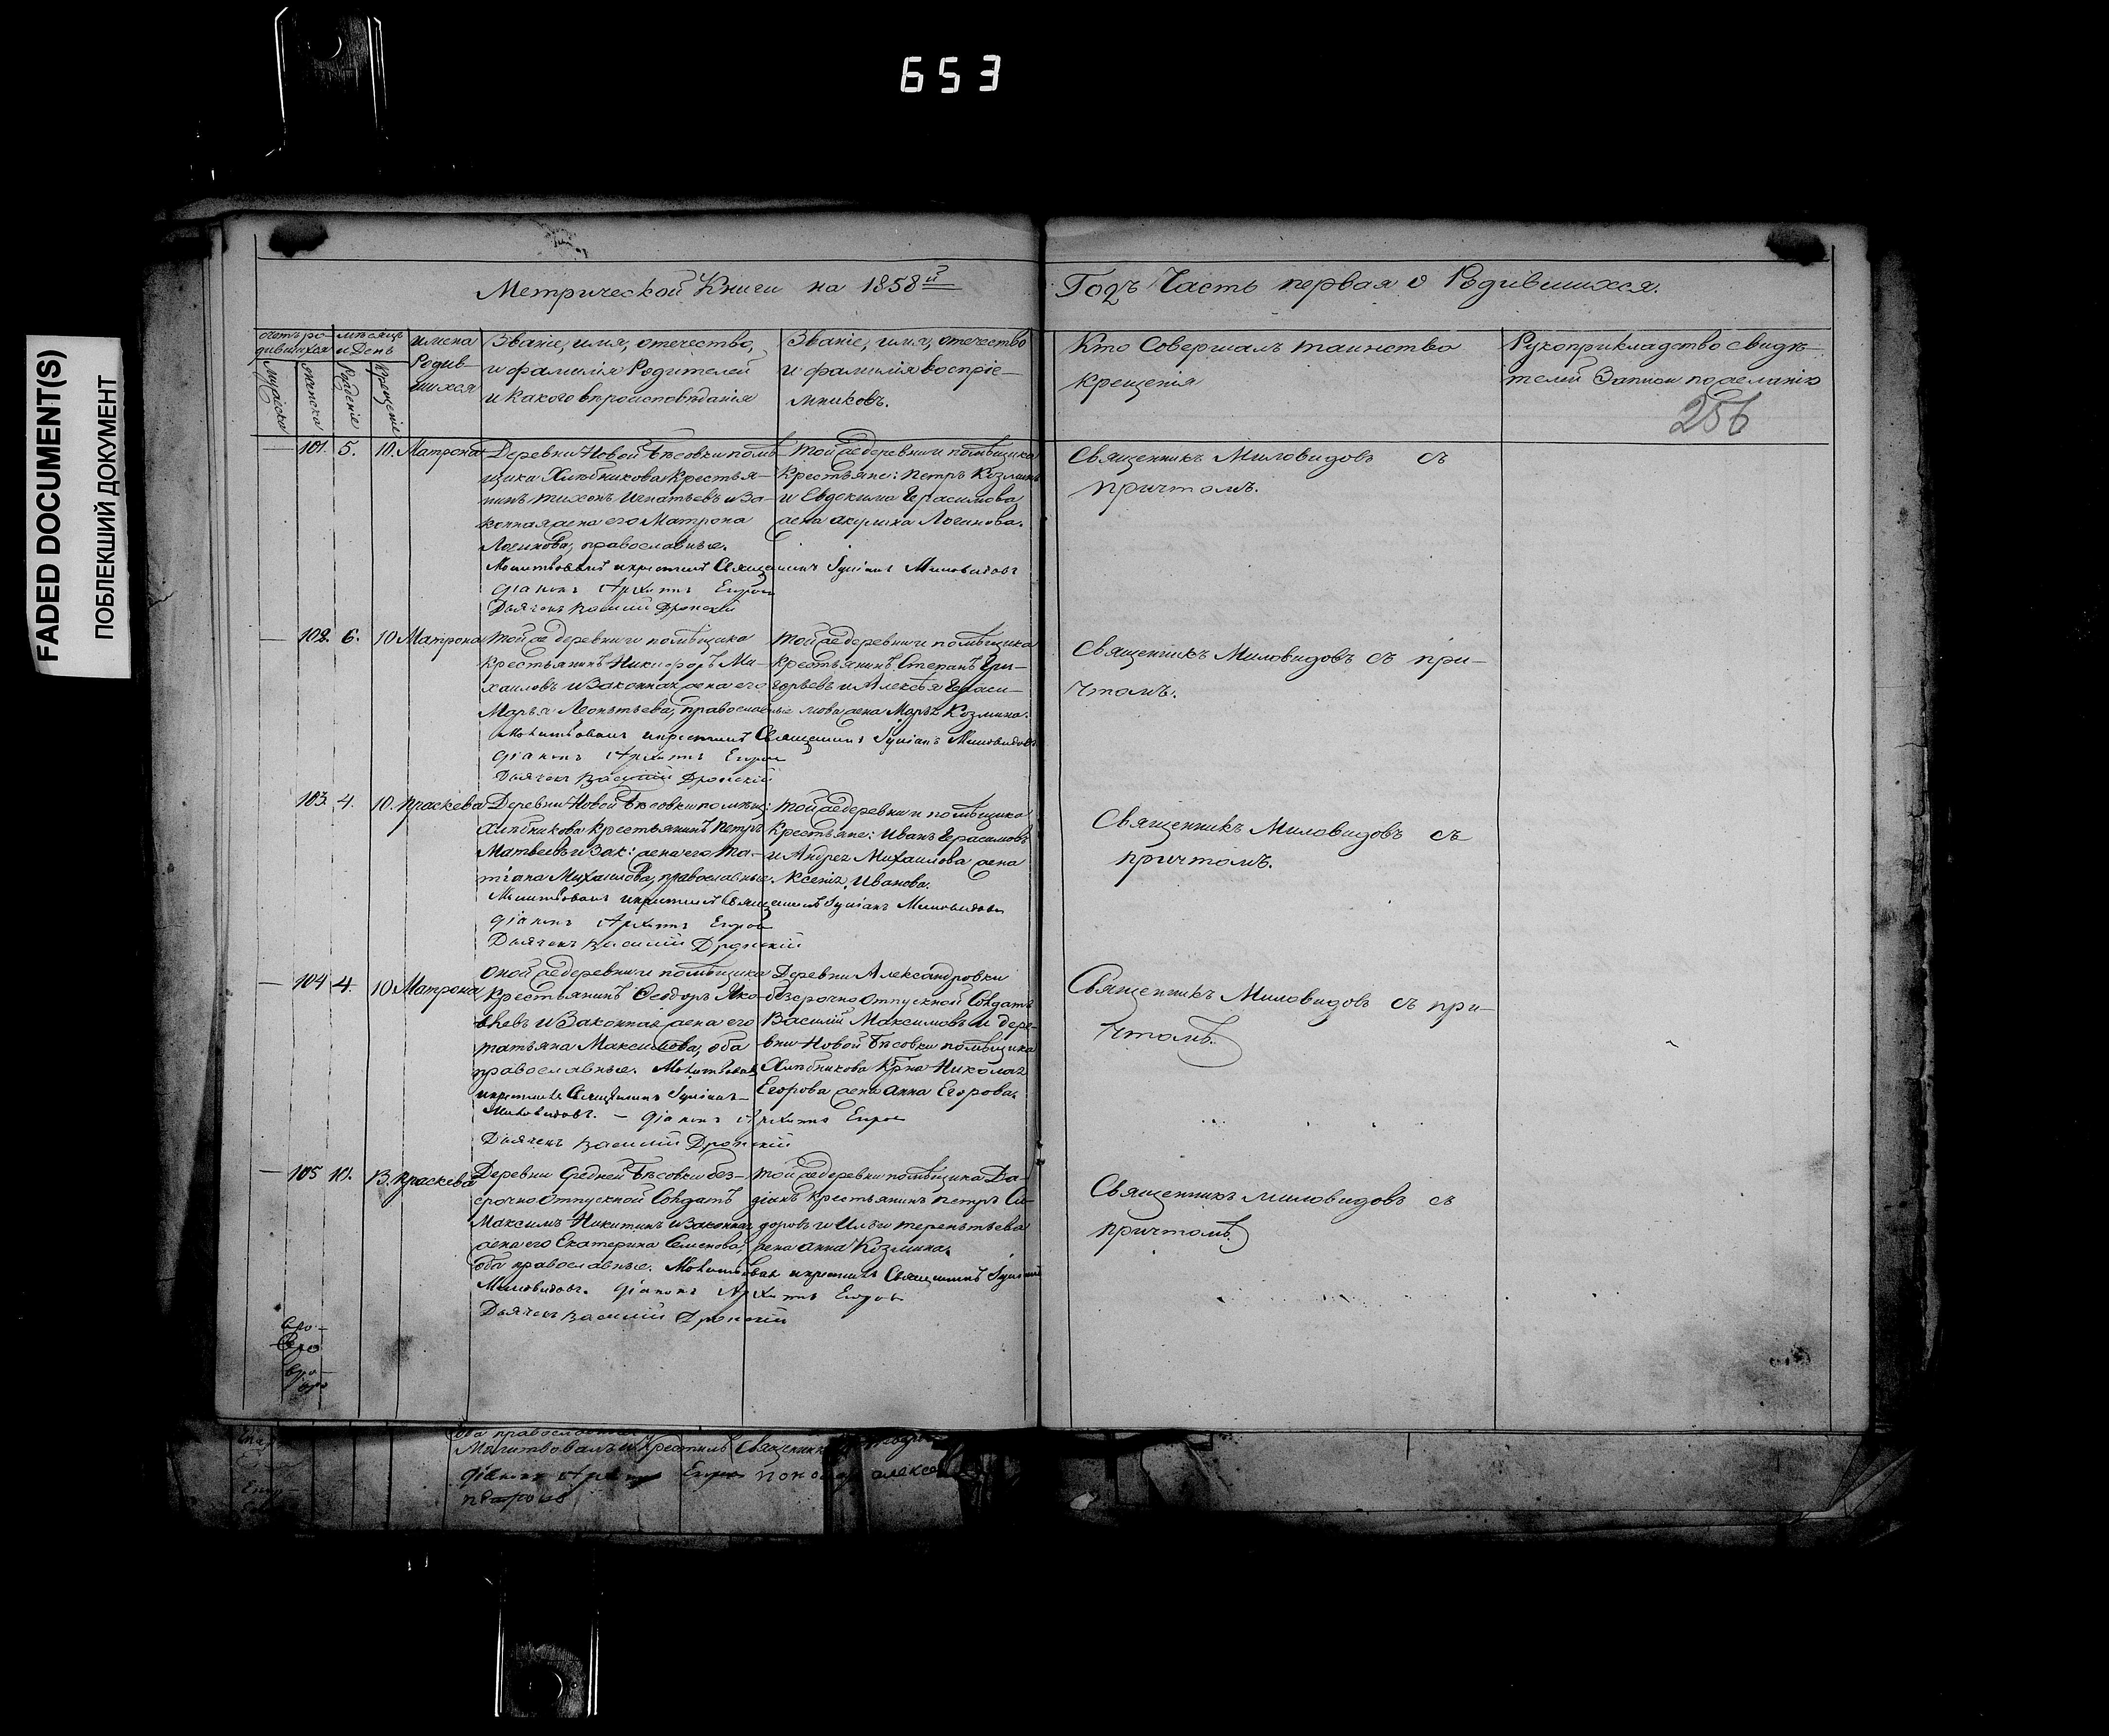 653
FADED DOCUMENT(S)
ПОБЛЕКШИЙ ДОКУМЕНТ
Метрической Книги на 1858й
Годъ Часть первая о Родившихся.
Счетъ родившихся
мужеска
женска
мѣсяцъ и День
Рожденіе
Крещеніе
имена Родившихся
Званіе, имя, отечество,
и фамилія Родителей
и Какого вѣроисповѣданія
Званіе, имя, отечество
и фамилія воспріе-
мниковъ.
Кто Совершалъ таинство
крещенія
Рукоприкладство свидѣ-
телей Записи по желанію
256
101. 5. 10. Матрона
Деревни Новой Бѣсовки помѣ-
щика Хлѣбникова Крестья-
нинъ тихонъ Игнатьевъ и За-
конная жена его Матрона
Логинова, православные.
Той же деревни и помѣщика
Крестьяне: Петръ Козминъ
и Евдокима Герасимова
жена акулина Логинова.
Молитвовалъ и крестилъ Священникъ Миловидовъ
Діаконъ Архипъ
Дьячекъ Василій
Священникъ Миловидовъ съ
причтомъ.
102. 6. 10 Матрона
Той же деревни и помѣщика
Крестьянинъ Никифоръ Ми-
хаиловъ и Законная жена его
Марья Леонтьева, православные
Той же деревни и помѣщика
Крестьянинъ Степанъ Гри-
горьевъ и Алексѣя Гераси-
мова жена Марья Козмина.
Молитвовалъ и крестилъ Священникъ Миловидовъ
Діаконъ Архипъ
Дьячекъ Василій
Священникъ Миловидовъ съ при-
чтомъ.
103. 4. 10. Праскева
Деревни Новой Бѣсовки помѣщ:
Хлѣбникова Крестьянинъ Петръ
Матвеевъ и Зак: жена его Та-
тіана Михаилова, православные.
Той же деревни и помѣщика
Крестьяне: Иванъ Герасимовъ
и Андрея Михаилова жена
Ксенія Иванова.
Молитвовалъ и крестилъ Священникъ Миловидовъ
Діаконъ Архипъ
Дьячекъ Василій
Священникъ Миловидовъ съ
причтомъ.
104 4. 10 Матрона
Оной же деревни и помѣщика
Крестьянинъ Ѳеодоръ Яко-
влевъ и Законная жена его
татьяна Максимова, оба
православные. Молитвовалъ
и крестилъ Священникъ
Миловидовъ. — Діаконъ Архипъ
Дьячекъ Василій
Деревни Александровки
безсрочно отпускной Солдатъ
Василій Максимовъ и дере-
вни Новой Бѣсовки помѣщика
Хлѣбникова Крна Николая
Егорова жена Анна Егорова.
Священникъ Миловидовъ съ при-
чтомъ.
105 10. 13. Праскева
Деревни Средней Бѣсовки без-
срочно отпускной Солдатъ
Максимъ Никитинъ и Законная
жена его Екатерина Семенова,
оба православные.
Той же деревни помѣщика Да-
діанъ Крестьянинъ Петръ Си-
доровъ и Ильи терентьева
жена Анна Козмина.
Молитвовалъ и крестилъ Священникъ
Миловидовъ. Діаконъ Архипъ
Дьячекъ Василій
Священникъ Миловидовъ съ
причтомъ.
оба православные
Молитвовалъ и Крестилъ Священникъ
Діаконъ